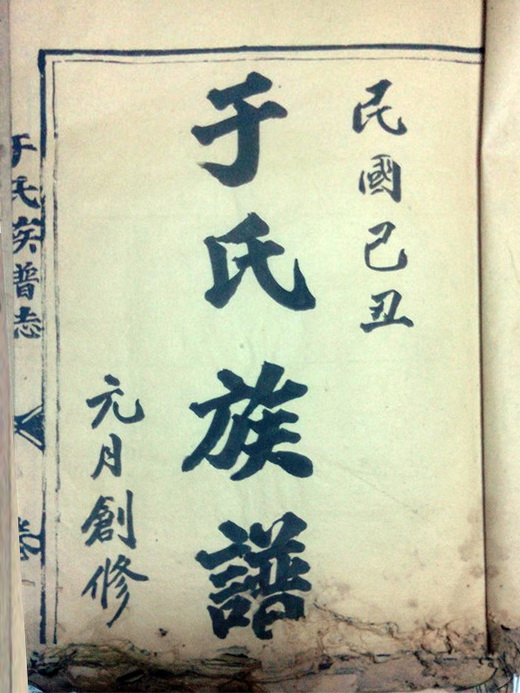 民國己丑
于氏族譜
元月創修
于氏族普志